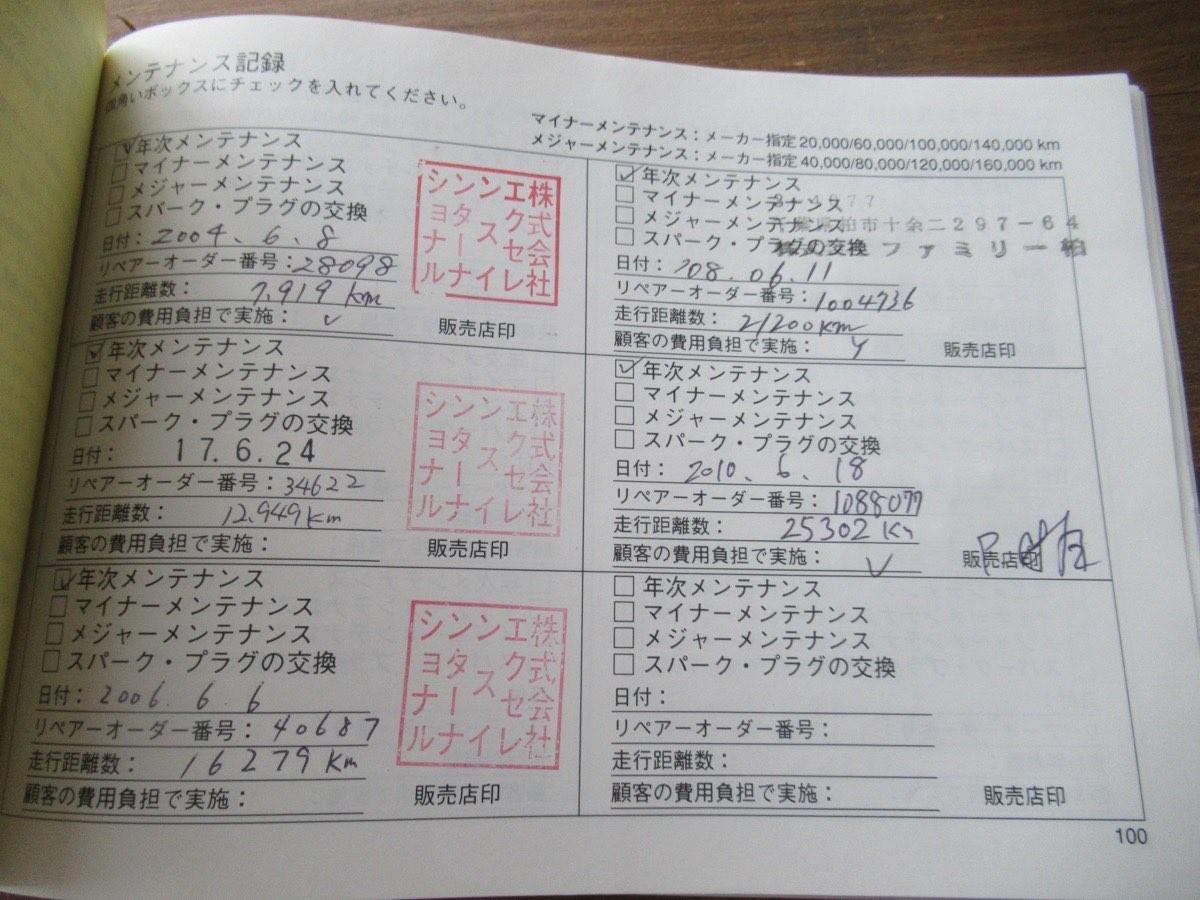 メンテナンス記録
四角いボックスにチェックを入れてください。
マイナーメンテナンス：メーカー指定20,000/60,000/100,000/140,000 km
メジャーメンテナンス：メーカー指定40,000/80,000/120,000/160,000 km
年次メンテナンス
マイナーメンテナンス
メジャーメンテナンス
スパーク・プラグの交換
日付：2004.6.8
リペアーオーダー番号：28098
走行距離数：7,919 km
顧客の費用負担で実施：✓
販売店印
シンンエ株
ヨタスク式
ナーセ会
ルナイレ社
年次メンテナンス
マイナーメンテナンス
メジャーメンテナンス
スパーク・プラグの交換
日付：17.6.24
リペアーオーダー番号：34622
走行距離数：12,949 Km
顧客の費用負担で実施：
販売店印
シンンエ株
ヨタスク式
ナーセ会
ルナイレ社
年次メンテナンス
マイナーメンテナンス
メジャーメンテナンス
スパーク・プラグの交換
日付：2006.6.6
リペアーオーダー番号：40687
走行距離数：16279 Km
顧客の費用負担で実施：
販売店印
シンンエ株
ヨタスク式
ナーセ会
ルナイレ社
年次メンテナンス
マイナーメンテナンス
メジャーメンテナンス
スパーク・プラグの交換
柏市十余二297-64
ファミリー柏
日付：'08.06.11
リペアーオーダー番号：1004736
走行距離数：21200km
顧客の費用負担で実施：
販売店印
年次メンテナンス
マイナーメンテナンス
メジャーメンテナンス
スパーク・プラグの交換
日付：2010.6.18
リペアーオーダー番号：1088077
走行距離数：25302 Km
顧客の費用負担で実施：✓
販売店印
年次メンテナンス
マイナーメンテナンス
メジャーメンテナンス
スパーク・プラグの交換
日付：
リペアーオーダー番号：
走行距離数：
顧客の費用負担で実施：
販売店印
100